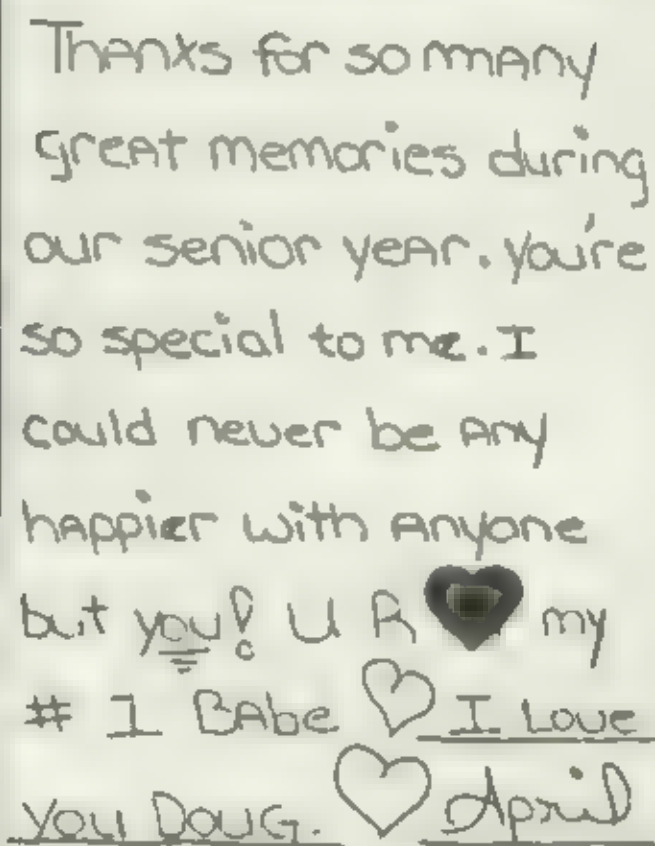 Thanks for so many
great memories during
our senior year. you're
so special to me. I
could never be any
happier with anyone
but you! U R ♥ my
# 1 Babe ♡ I Love
you Doug. ♡ April